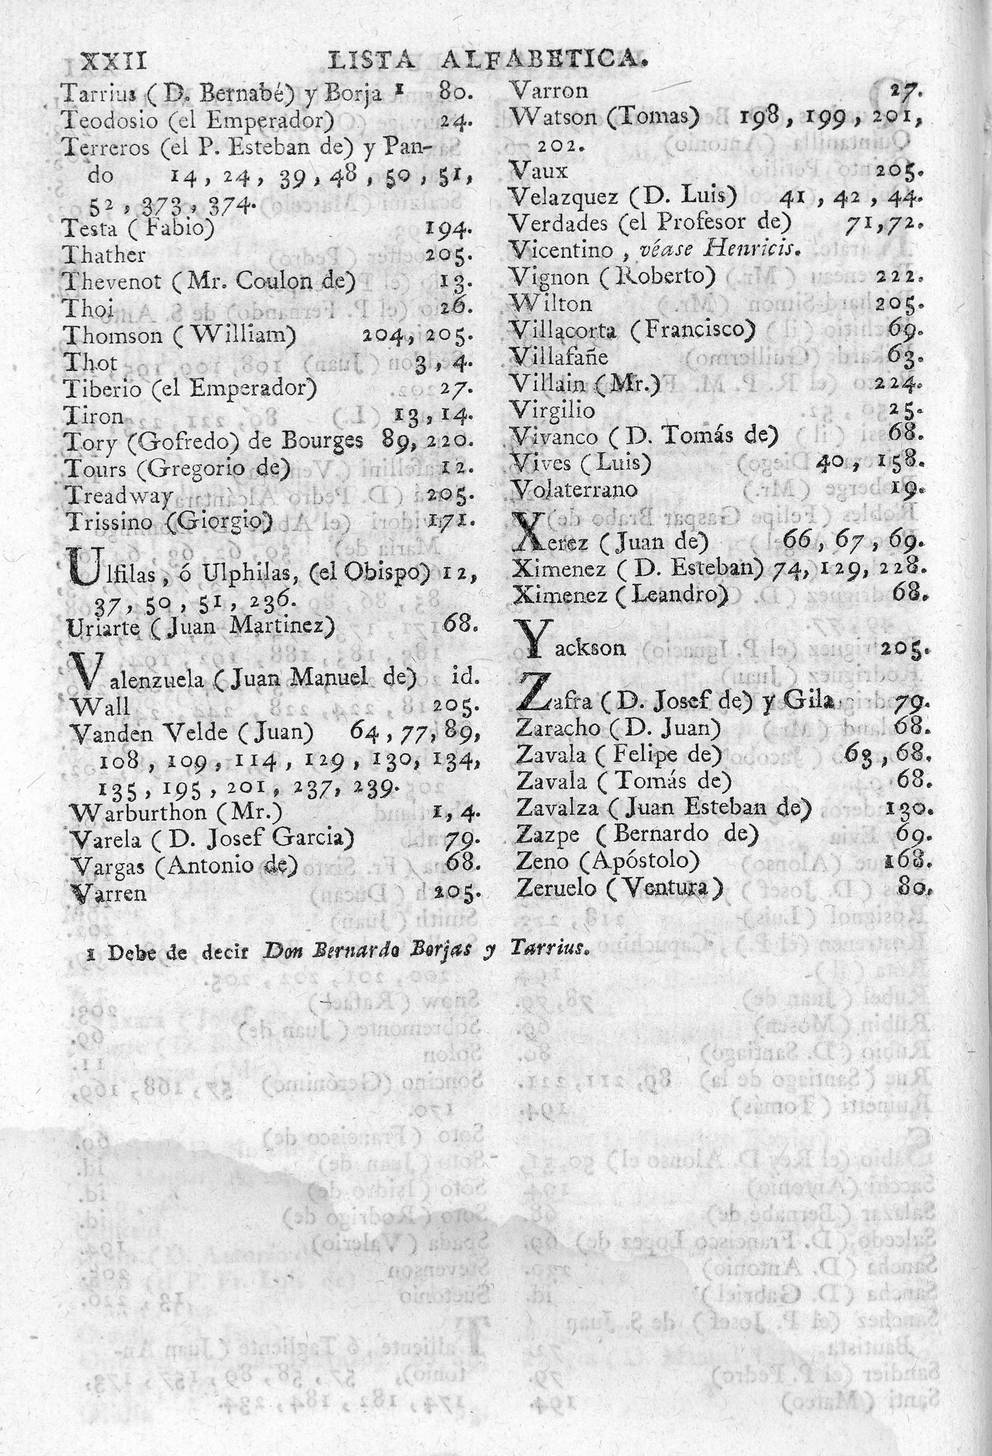 XXII LISTA ALFABETICA.
Tarrius ( D. Bernabé) y Borja ¹ 80.
Teodosio (el Emperador) 24.
Terreros (el P. Esteban de) y Pan-
do 14, 24, 39, 48, 50, 51,
52, 373, 374.
Testa ( Fabio) 194.
Thather 205.
Thevenot ( Mr. Coulon de) 13.
Thoi 26.
Thomson ( William) 204, 205.
Thot 3, 4.
Tiberio (el Emperador) 27.
Tiron 13, 14.
Tory (Gofredo) de Bourges 89, 220.
Tours (Gregorio de) 12.
Treadway 205.
Trissino (Giorgio) 171.
Ulfilas, ó Ulphilas, (el Obispo) 12,
37, 50, 51, 236.
Uriarte ( Juan Martinez) 68.
Valenzuela ( Juan Manuel de) id.
Wall 205.
Vanden Velde ( Juan) 64, 77, 89,
108, 109, 114, 129, 130, 134,
135, 195, 201, 237, 239.
Warburthon ( Mr.) 1, 4.
Varela ( D. Josef Garcia) 79.
Vargas (Antonio de) 68.
Varren 205.
Varron 27.
Watson (Tomas) 198, 199, 201,
202.
Vaux 205.
Velazquez (D. Luis) 41, 42, 44.
Verdades (el Profesor de) 71, 72.
Vicentino, véase Henricis.
Vignon ( Roberto) 222.
Wilton 205.
Villacorta ( Francisco) 69.
Villafañe 63.
Villain ( Mr.) 224.
Virgilio 25.
Vivanco ( D. Tomás de) 68.
Vives ( Luis) 40, 158.
Volaterrano 19.
Xerez ( Juan de) 66, 67, 69.
Ximenez ( D. Esteban) 74, 129, 228.
Ximenez ( Leandro) 68.
Yackson 205.
Zafra ( D. Josef de) y Gila 79.
Zaracho ( D. Juan) 68.
Zavala ( Felipe de) 63, 68.
Zavala ( Tomás de) 68.
Zavalza ( Juan Esteban de) 130.
Zazpe ( Bernardo de) 69.
Zeno (Apóstolo) 168.
Zeruelo ( Ventura) 80.
1 Debe de decir Don Bernardo Borjas y Tarrius.